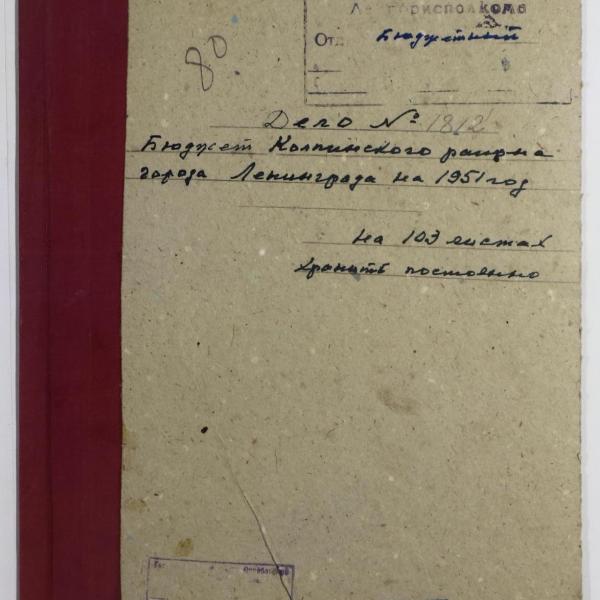 горисполкома
Отд. Бюджетный
80
Дело № 1812
Бюджет Колпинского района
города Ленинграда на 1951 год
на 103 листах
хранить постоянно